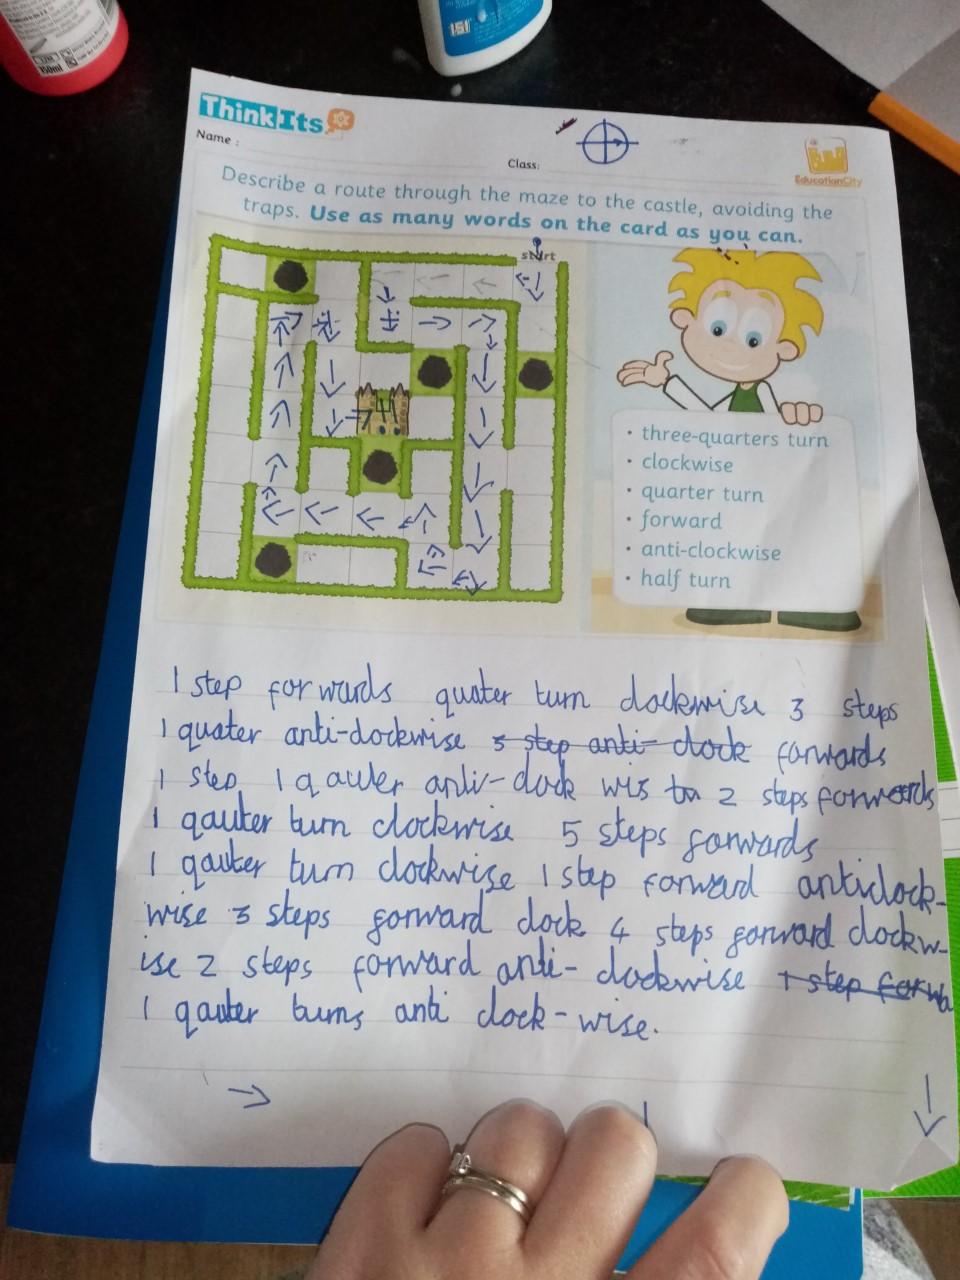 ThinkIts
Name :
Class:
EducationCity
Describe a route through the maze to the castle, avoiding the
traps. Use as many words on the card as you can.
start
• three-quarters turn
• clockwise
• quarter turn
• forward
• anti-clockwise
• half turn
1 step forwards quater turn clockwise 3 steps
1 quater anti-clockwise 3 step anti-clock forwards
1 step 1 qauter anti-clock wis tn 2 steps forwards
1 qauter turn clockwise 5 steps forwards
1 qauter turn clockwise 1 step forward anticlock-
wise 3 steps forward clock 4 steps forward clockw-
ise 2 steps forward anti-clockwise 1 step forwa
1 qauter turns anti clock-wise.